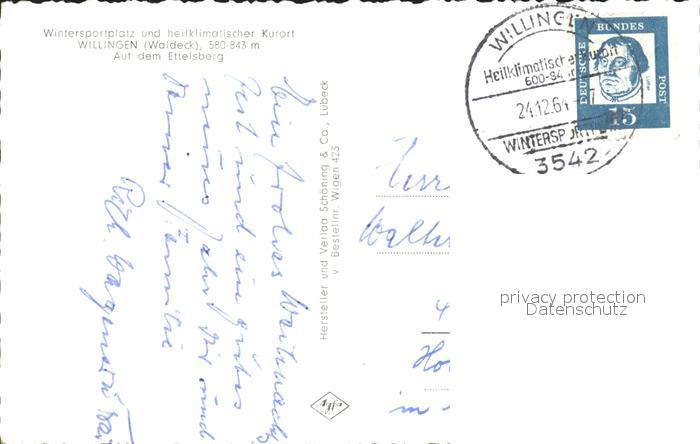 Wintersportplatz und heilklimatischer Kurort
WILLINGEN (Waldeck), 580-843 m
Auf dem Ettelsberg
WILLINGEN
Heilklimatischer Kurort
600-84
24.12.64
WINTERSPORTPL
3542
DEUTSCHE
BUNDES
POST
Luther
15
Hersteller und Verlag Schöning & Co., Lübeck
v Bestellnr. Wigen 423
Eine frohes Weihnachts
fest und ein gutes
neues Jahr Dir und
Deiner Familie
Herr
Walter
4
Ho
im
privacy protection
Datenschutz